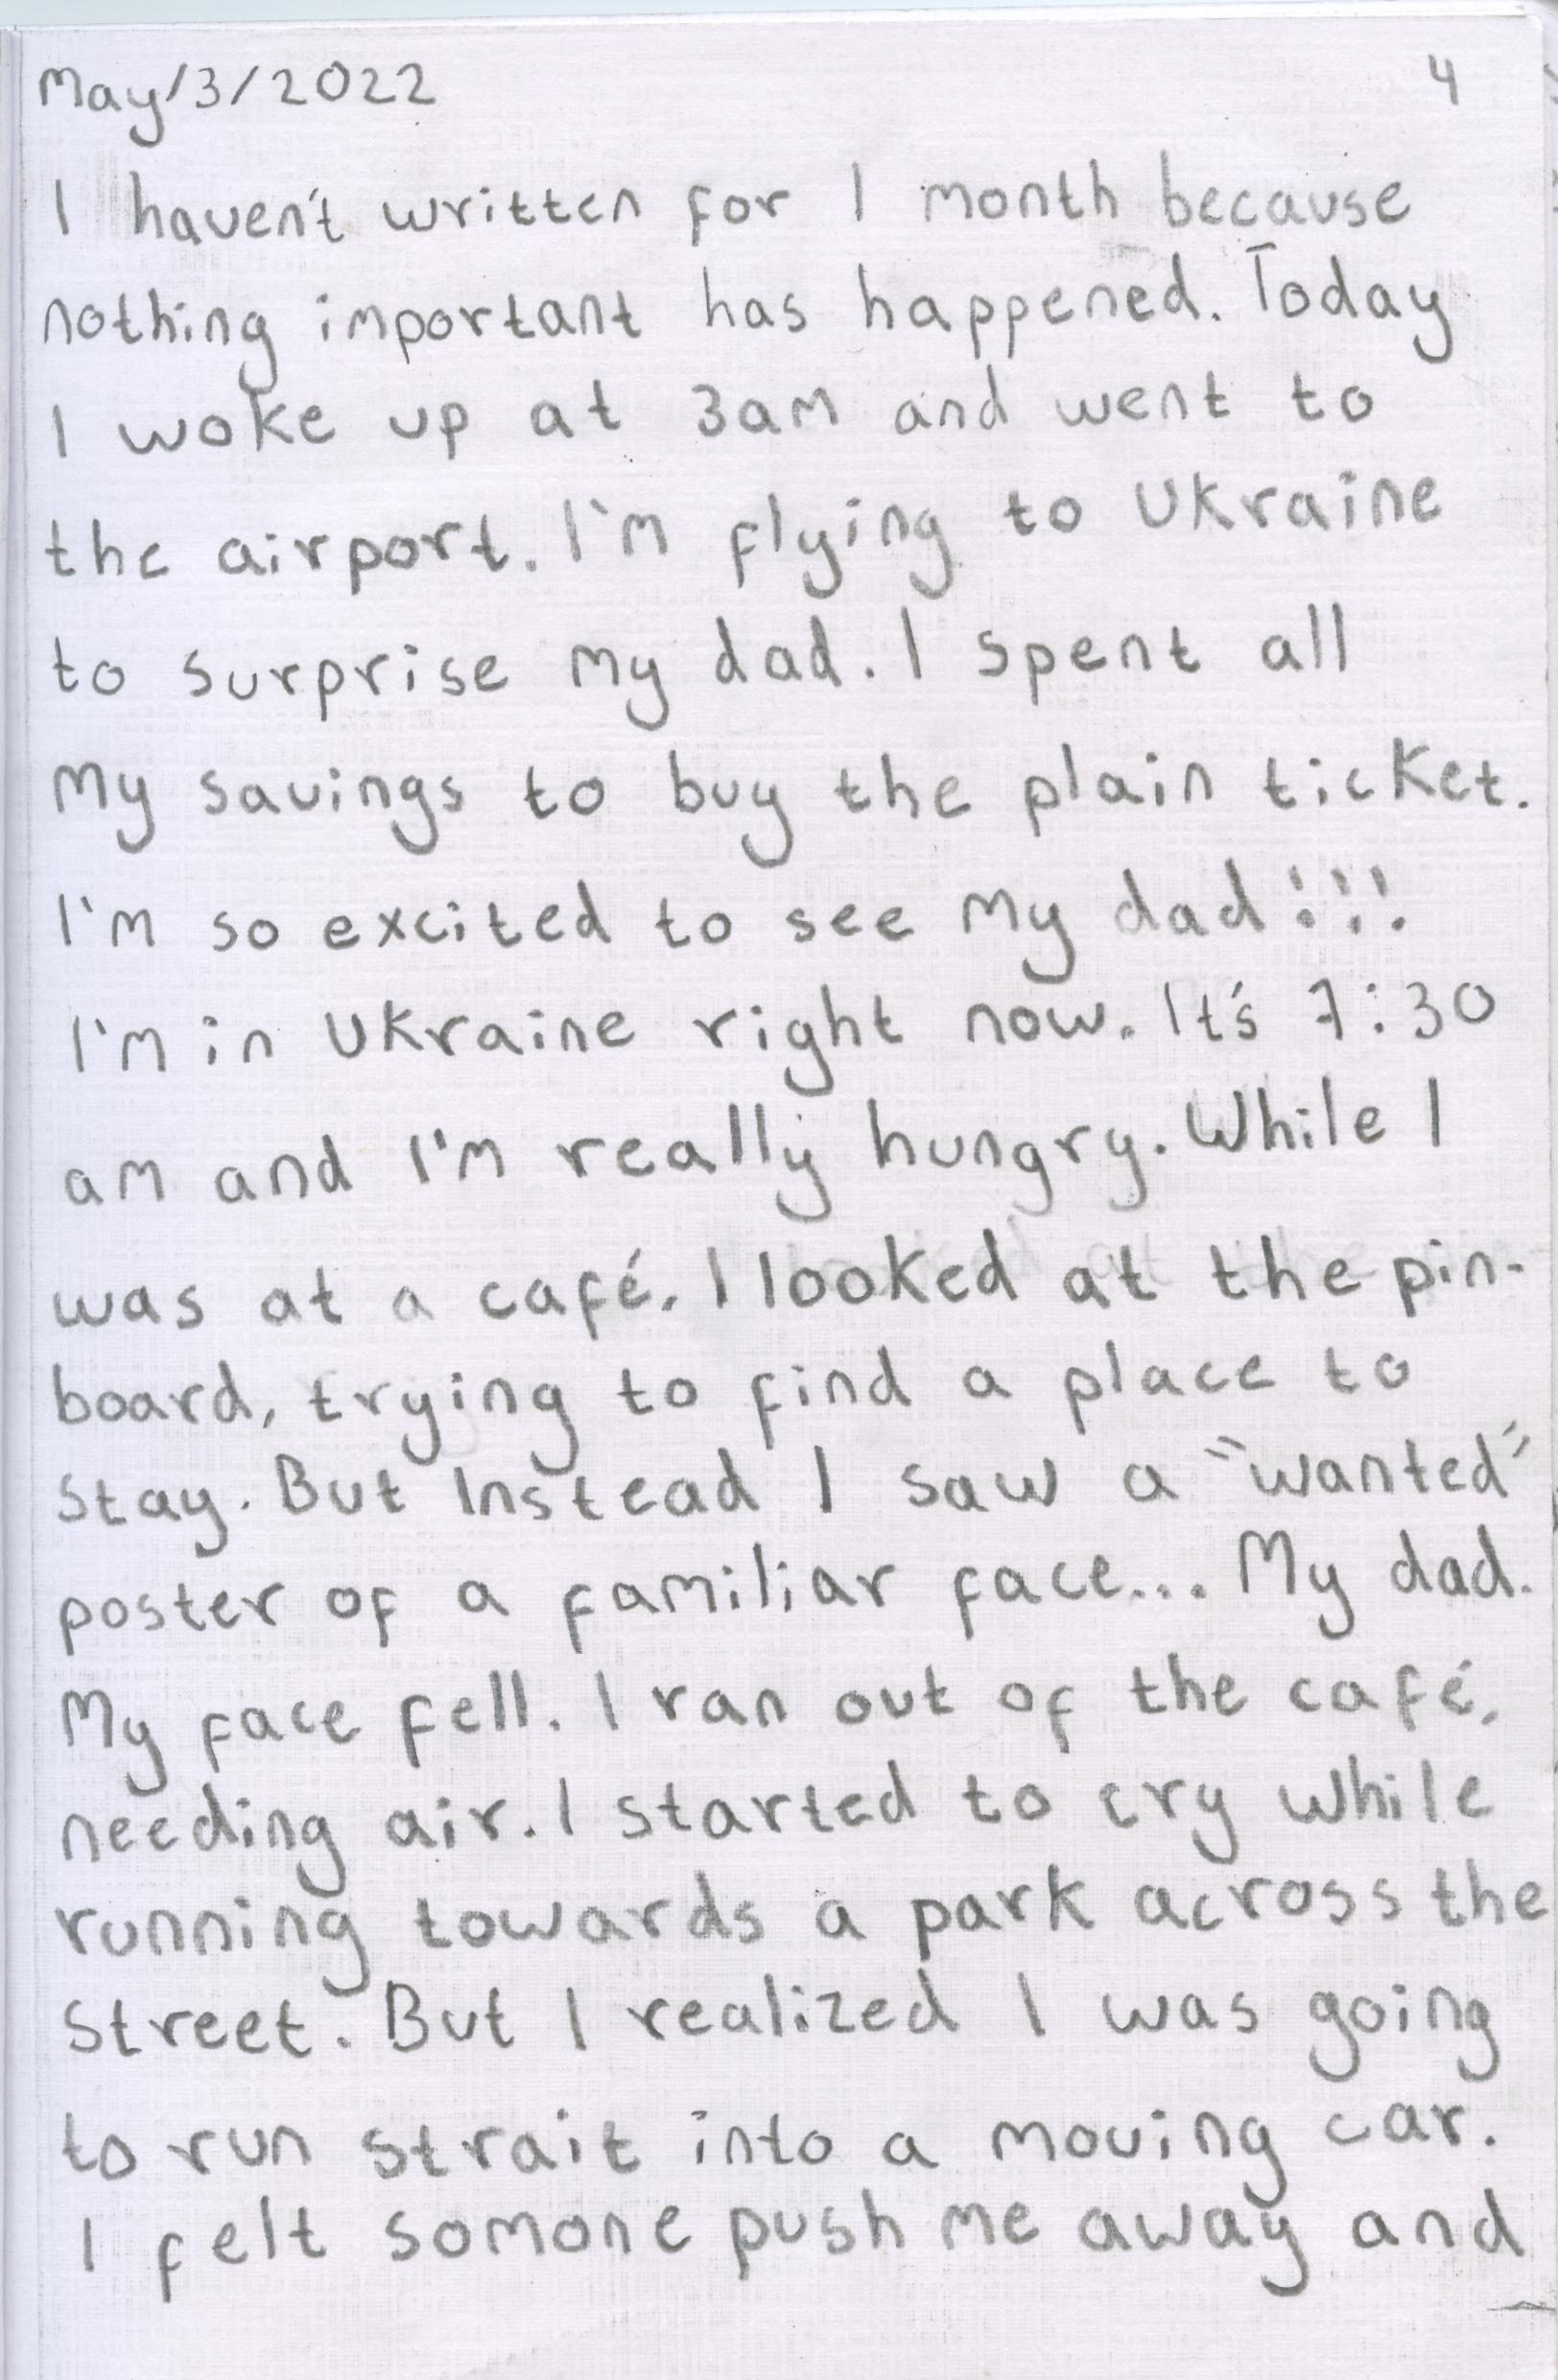 May/3/2022 4
I haven't written for 1 month because
nothing important has happened. Today
I woke up at 3am and went to
the airport. I'm flying to Ukraine
to surprise my dad. I spent all
my savings to buy the plain ticket.
I'm so excited to see my dad!!!
I'm in Ukraine right now. It's 7:30
am and I'm really hungry. While I
was at a café. I looked at the pin-
board, trying to find a place to
stay. But instead I saw a "wanted"
poster of a familiar face... My dad.
My face fell. I ran out of the café,
needing air. I started to cry while
running towards a park across the
street. But I realized I was going
to run strait into a moving car.
I felt somone push me away and